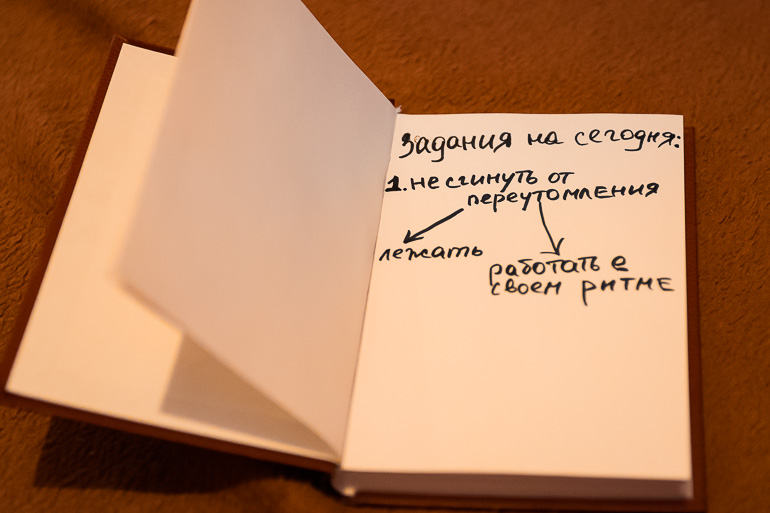 Задания на сегодня:
1. не сгинуть от
переутомления
лежать
работать в
своем ритме